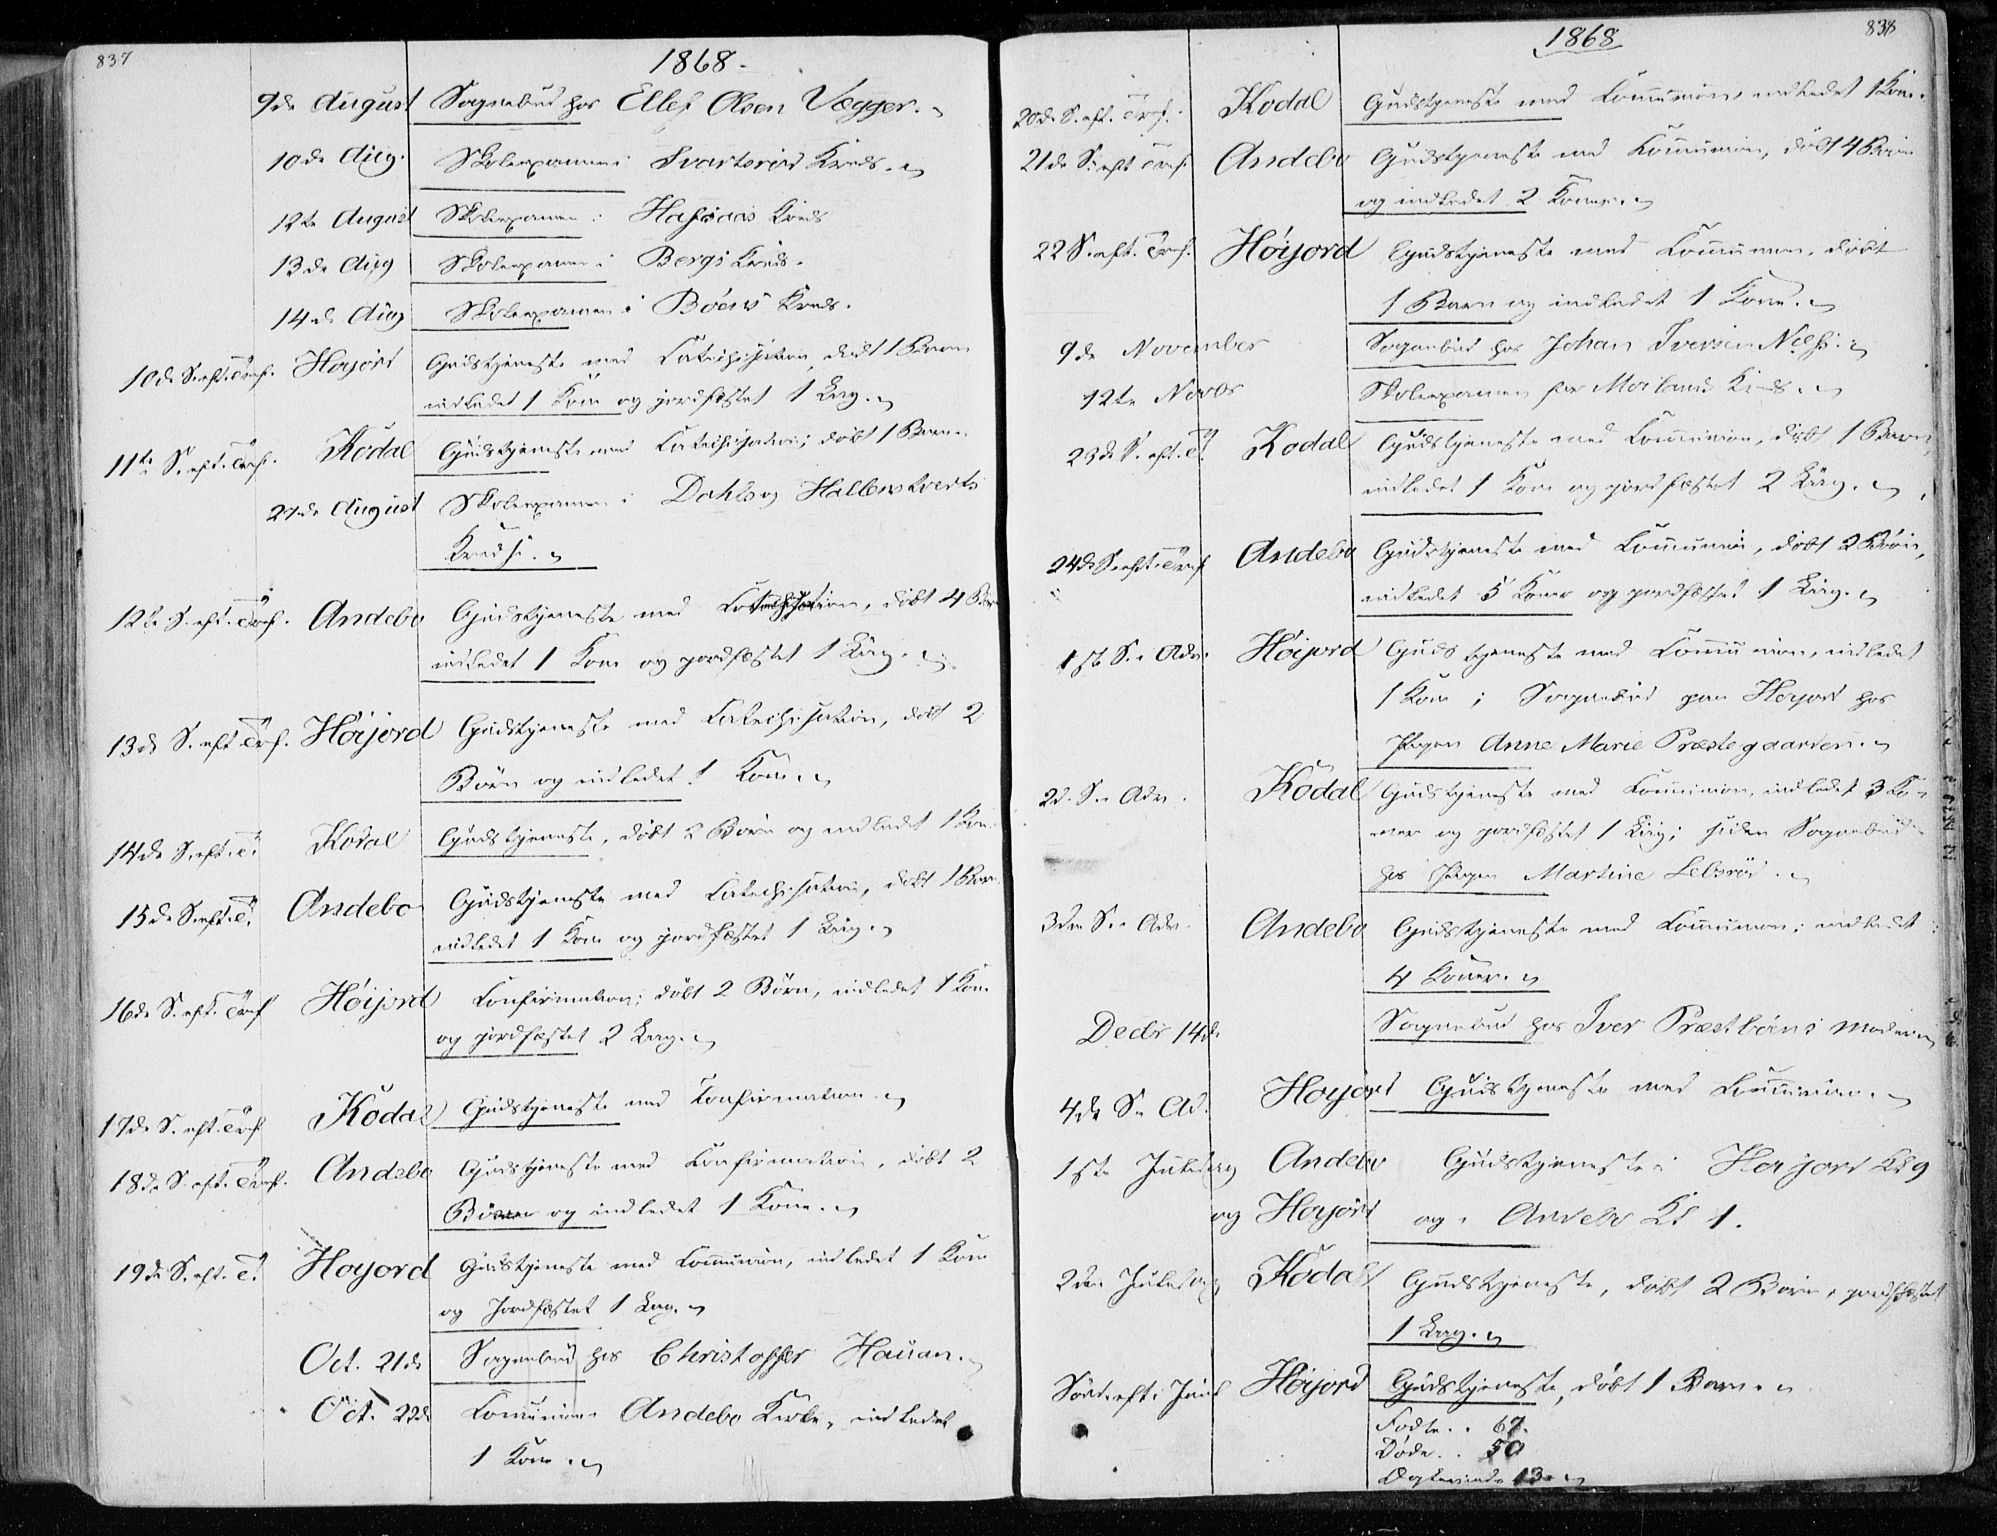 837
1868.
9de August Sognebud hos Ellef Olsen Vegger.
10de Aug. Skoleexamen i Svartsrød Kreds.
12te August Skoleexamen i Kreds
13de Aug Skoleexamen i Bergs Kreds.
14de Aug Skoleexamen i Böens Kreds.
10de S. eft. Tref. Høyjord Gudstjeneste med Catechisation, døbt 1 Barn
indledet 1 Kone og jordfæstet 1 Liig.
11te S. eft. Tref. Kodal Gudstjeneste med Catechisation; døbt 1 Barn.
27de August Skoleexamen i Dahls og Hallenskverts
Kredse.
12te S. eft. Tref. Andebo Gudstjeneste med Catechisation, døbt 4 Børn
indledet 1 Kone og jordfæstet 1 Liig.
13de S. eft Tref. Höijord Gudstjeneste med Catechisation, døbt 2
Börn og indledet 1 Kone.
14de S. eft. T. Kodal Gudstjeneste, döbt 2 Börn og indledet 1 Kone
15de S. eft. T. Andebo Gudstjeneste med Catechisation, döbt 1 Barn
indledet 1 Kone og jordfæstet 1 Liig.
16de S. eft. Tref Höijord Confirmation; döbt 2 Börn, indledet 1 Kone
og jordfæstet 2 Liig.
17de S. eft. Tref Kodal Gudstjeneste med Confirmation.
18de S. eft. Tref. Andebo Gudstjeneste med Confirmation, döbt 2
Börn og indledet 1 Kone.
19de S. eft. T. Høyjord Gudstjeneste med Communion, indledet 1 Kone
og Jordfæstet 1 Liig.
Oct. 21de Sognebud hos Christopher Hauan.
Oct. 22de Communion i Andebo Kirke, indledet
1 Kone.
838
1868
20de S. eft. Tref. Kodal Gudstjeneste med Communion, indledet 1 Kone.
21de S. eft Tref. Andebo Gudstjeneste med Communion, döbt 4 Börn
og indledet 2 Koner.
22 S. eft. Tref. Höyjord Gudstjeneste med Communion, döbt
1 Barn og indledet 1 Kone.
9de November Sognebud hos Johan Iversen
12te Novbr Skoleexamen for Møilands Kreds.
23de S. eft. T. Kodal Gudstjeneste med Communion, döbt 1 Barn,
indledet 1 Kone og jordfæstet 2 Liig.
24de S. eft. Tref Andebo Gudstjeneste med Communion, döbt 2 Börn,
indledet 5 Koner og jordfæstet 1 Liig.
1ste S. i Adv. Höijord Gudstjeneste med Communion, indledet
1 Kone; Sognebud paa Høyjord hos
Pigen Anne Marie Præstegaarden.
2d. S. i Adv. Kodal Gudstjeneste med Communion, indledet 3 Ko-
ner og jordfæstet 1 Liig; siden Sognebud
hos Pigen Martine Lebsröd.
3die S. i Adv. Andebo Gudstjeneste med Communion; indledet
4 Koner.
Decbr 14de Sognebud hos Iver Præstbøens Moder
4de S. i Ad. Høyjord Gudstjeneste med Communion.
1ste Juledag Andebo Gudstjeneste i Høijord Kl 9
og Høyjord og i Andebo Kl 1.
2den Juledag Kodal Gudstjeneste, döbt 2 Börn, jordfæstet
1 Liig.
Sönd. eft. Juul Höijord Gudstjeneste, döbt 1 Barn.
Födte . . 67.
Döde . . 50
13